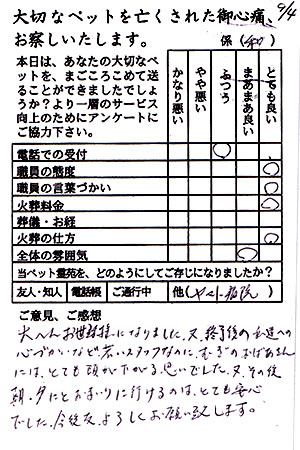 9/4
大切なペットを亡くされた御心痛、
お察しいたします。
係( )
本日は、あなたの大切なペットを、まごころこめて送ることができましたでしょうか?より一層のサービス向上のためにアンケートにご協力下さい。
かなり悪い
やや悪い
ふつう
まあまあ良い
とても良い
電話での受付 ○
職員の態度 ○
職員の言葉づかい ○
火葬料金 ○
葬儀・お経
火葬の仕方 ○
全体の雰囲気 ○
当ペット霊苑を、どのようにしてご存じになりましたか?
友人・知人 電話帳 ご通行中 他( 病院)
ご意見、ご感想
大へんお世話様になりました。又、終了後の への
心づかいなど若いスタッフなのに、 のおばあさん
には、とても頭が下がる思いでした。又、その後
朝、夕にとおまいりに行けるのは、とても安心
でした。今後友、よろしくお願い致します。